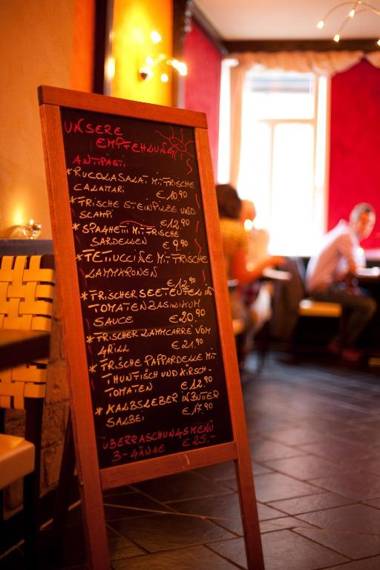 UNSERE
EMPFEHLUNG
ANTIPASTI:
* RUCOLASALAT MIT FRISCHE
CALAMARI € 10,90
* FRISCHE STEINPILZE UND
SCAMPI € 12,90
* SPAGHETTI MIT FRISCHE
SARDELLEN € 9,90
* TETUCCINE MIT FRISCHE
LAMMARONEN
€ 12,90
* FRISCHER SEETEUFEL IN
TOMATENBASILIKUM
SAUCE € 20,90
* FRISCHER LAMMCARRÉ VOM
GRILL € 21,90
* FRISCHE PAPPARDELLE MIT
THUNFISCH UND KIRSCH-
TOMATEN € 12,90
* KALBSLEBER IN BUTTER
SALBEI € 17,90
ÜBERRASCHUNGSMENÜ
3-GÄNGE € 25.-